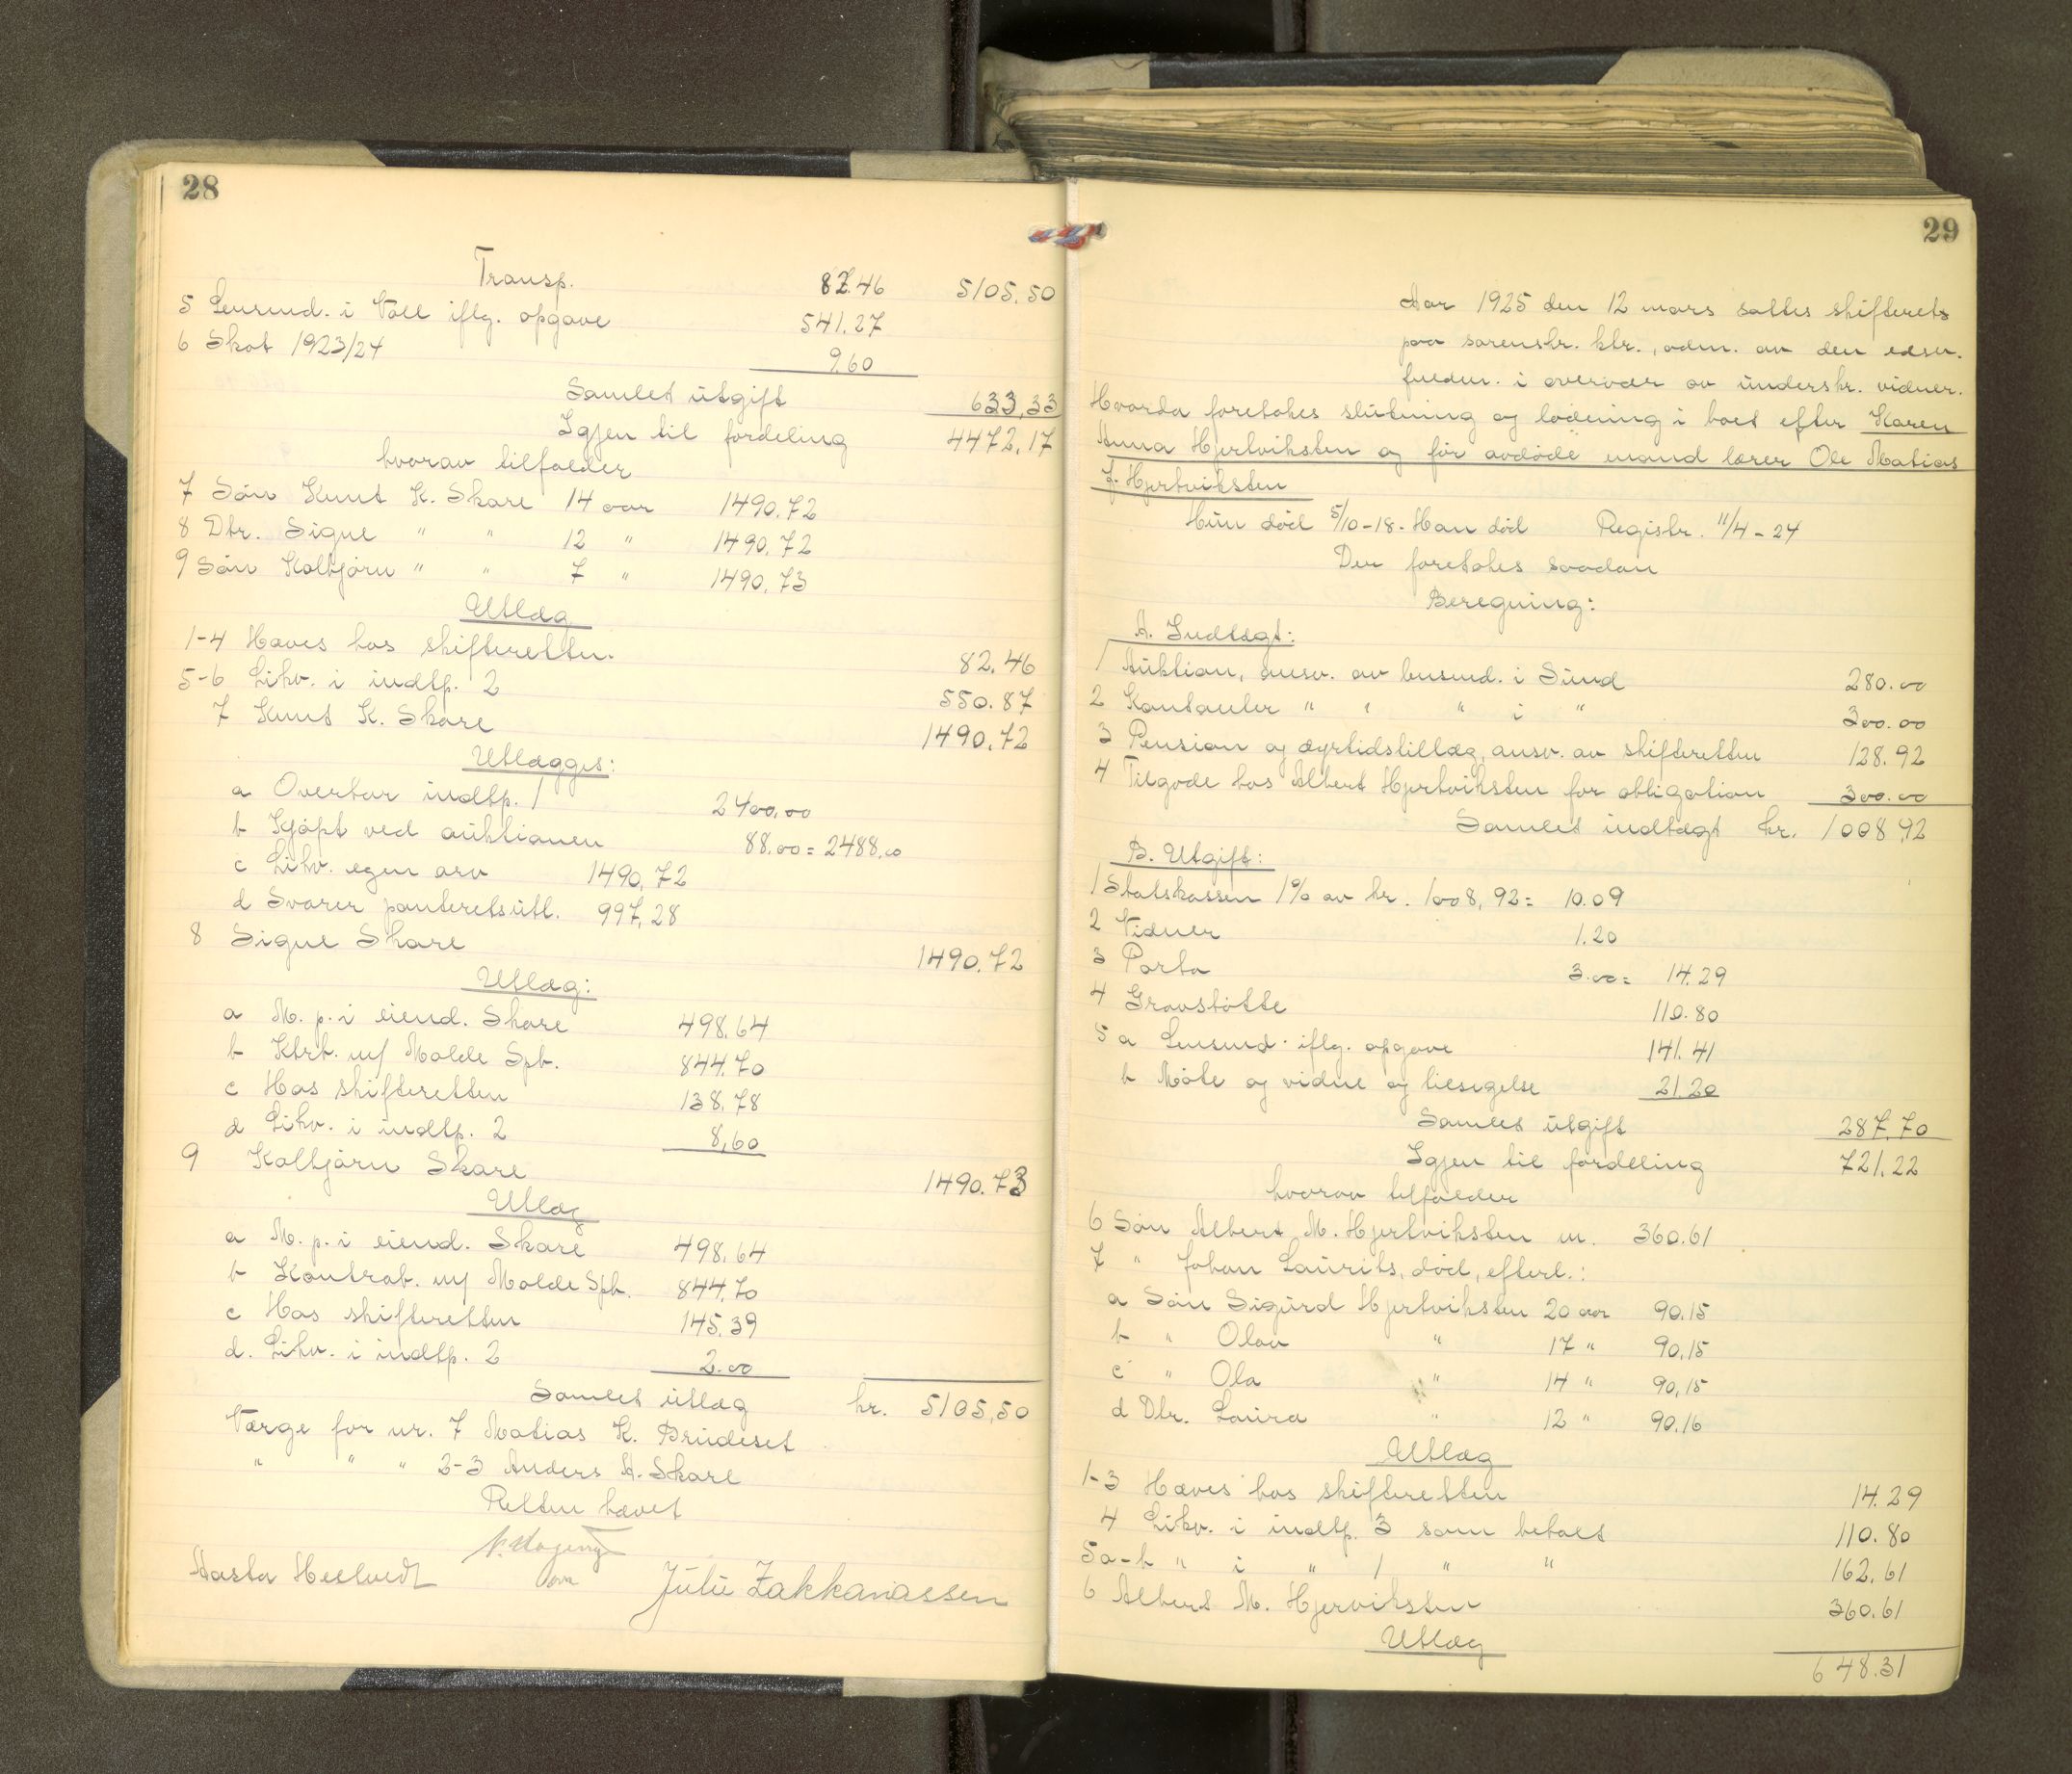 28
Transp. 82.46 5105.50
5 Lensmd. i Voll iflg. opgave 541.27
6 Skat 1923/24 9.60
Samlet utgift 633,33
Igjen til fordeling 4472,17
hvorav tilfalder
7 Søn Knut K. Skare 14 aar 1490.72
8 Dtr. Signe " " 12 " 1490.72
9 Søn Kolbjørn " " 7 " 1490.73
Utlæg
1-4 Hæves hos skifteretten. 82.46
5-6 Likv. i indtp. 2 550.87
7 Knut K. Skare 1490.72
Utlægges:
a Overtar indtp. 1 2400,00
b Kjøpt ved auktionen 88.00 = 2488,00
c Likv. egen arv 1490,72
d Svarer panteretsutl. 997,28
8 Signe Skare 1490.72
Utlæg:
a M. p. i eiend. Skare 498.64
b Ktrb. m/ Molde Spb. 844.70
c Hos skifteretten 138.78
d Likv. i indtp. 2 8,60
9 Kolbjørn Skare 1490.73
Utlæg
a M. p. i eiend. Skare 498.64
b Kontrab. m/ Molde Spb. 844.70
c Hos skifteretten 145.39
d. Likv. i indtp. 2 2.00
Samlet utlæg kr. 5105,50
Værge for nr. 7 Matias K. Brudeset
" " " 2-3 Anders A. Skare
Retten hævet
Aasta Heelvedt Julie Zakkariassen
29
Aar 1925 den 12 mars sattes skifterets
paa sorenskr. ktr., adm. av den edsv.
fuldm. i overvær av underskr. vidner.
Hvorda foretokes slutning og lodning i boet efter Karen
Anna Hjertviksten og før avdøde mand lærer Ole Matias
J. Hjertviksten
Hun død 5/10-18. Han død Registr. 11/4-24
Der foretokes saadan
Beregning:
A. Indtægt:
1 Auktion, ansv. av lensmd. i Sund 280.00
2 Kontanter " " " i " 300.00
3 Pension og dyrtidstillæg, ansv. av skifteretten 128.92
4 Tilgode hos Albert Hjertviksten for obligation 300.00
Samlet indtægt kr. 1008,92
B. Utgift:
1 Statskassen 1% av kr. 1008,92 = 10.09
2 Vidner 1.20
3 Porto 3.00 = 14.29
4 Gravstøtte 110.80
5 a Lensmd. iflg. opgave 141.41
b Møte og vidne og liesegelse 21.20
Samlet utgift 287.70
Igjen til fordeling 721.22
hvorav tilfalder
6 Søn Albert M. Hjertviksten m. 360.61
7 " Johan Laurits, død, efterl.:
a Søn Sigurd Hjertviksten 20 aar 90.15
b " Olav " 17 " 90,15
c " Ola " 14 " 90,15
d Dtr. Laura " 12 " 90.16
Utlæg
1-3 Hæves hos skifteretten 14.29
4 Likv. i indtp. 3 som betalt 110.80
5a-b " i " 1 " " 162.61
6 Albert M. Hjerviksten 360.61
Utlæg
648.31